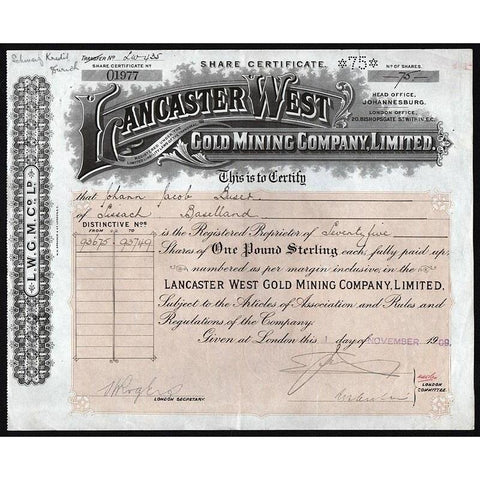 Schweiz Kredit
Zürich
TRANSFER Nº
SHARE CERTIFICATE.
✲75✲
Nº OF SHARES.
SHARE CERTIFICATE Nº
01977
75
LANCASTER WEST
GOLD MINING COMPANY, LIMITED.
HEAD OFFICE,
JOHANNESBURG.
LONDON OFFICE,
20, BISHOPSGATE ST WITHIN, E.C.
This is to Certify
that Johann Jacob Buser
of Sissach, Baselland
DISTINCTIVE Nos
FROM TO
93675 - 93749
is the Registered Proprietor of Seventy five
Shares of One Pound Sterling each, fully paid up,
numbered as per margin inclusive, in the
LANCASTER WEST GOLD MINING COMPANY, LIMITED.
Subject to the Articles of Association and Rules and
Regulations of the Company.
Given at London this day of NOVEMBER 1909.
LONDON SECRETARY
LONDON
COMMITTEE
L.W.G.M.Co. LD.